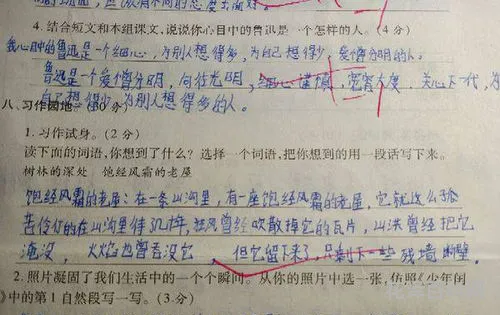 4. 结合短文和本组课文,说说你心目中的鲁迅是一个怎样的人。(4 分)
我心目中的鲁迅是一个细心,为别人想得多,为自己想得少,爱憎分明的人。
鲁迅是一个爱憎分明,向往光明,细心谨慎,宽宵大度,关心下一代,为
自己想得少,为别人想得多的人。
八、习作园地。(30 分)
1. 习作试身。(2 分)
读下面的词语,你想到了什么? 选择一个词语,把你想到的用一段话写下来。
树林的深处 饱经风霜的老屋
饱经风霜的老屋:在一条山沟里,有一座饱经风霜的老屋,它就这么孤
苦伶仃的在山沟里待几十年,狂风曾经吹散掉它的瓦片,山洪曾经把它
淹没,火焰也曾吞没它,但它留下来了,只剩下一些残墙断壁。
2. 照片凝固了我们生活中的一个个瞬间。从你的照片中选一张,仿照《少年闰
》中的第 1 自然段写一写。(3 分)